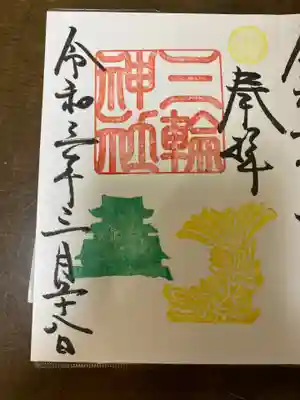 奉拝
三輪
神社
令和三年三月二十八日